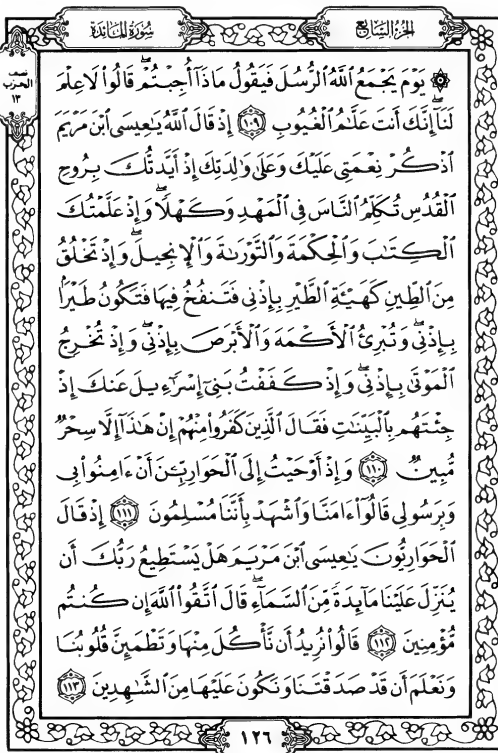 سُورَةُ المَائدَة
الجُزءُ السَّابِع
نصف
الحزب
١٣
۞ يَوْمَ يَجْمَعُ ٱللَّهُ ٱلرُّسُلَ فَيَقُولُ مَاذَآ أُجِبْتُمْۖ قَالُوا۟ لَا عِلْمَ
لَنَآۖ إِنَّكَ أَنتَ عَلَّٰمُ ٱلْغُيُوبِ ١٠٩ إِذْ قَالَ ٱللَّهُ يَٰعِيسَى ٱبْنَ مَرْيَمَ
ٱذْكُرْ نِعْمَتِى عَلَيْكَ وَعَلَىٰ وَٰلِدَتِكَ إِذْ أَيَّدتُّكَ بِرُوحِ
ٱلْقُدُسِ تُكَلِّمُ ٱلنَّاسَ فِى ٱلْمَهْدِ وَكَهْلًاۖ وَإِذْ عَلَّمْتُكَ
ٱلْكِتَٰبَ وَٱلْحِكْمَةَ وَٱلتَّوْرَىٰةَ وَٱلْإِنجِيلَۖ وَإِذْ تَخْلُقُ
مِنَ ٱلطِّينِ كَهَيْـَٔةِ ٱلطَّيْرِ بِإِذْنِى فَتَنفُخُ فِيهَا فَتَكُونُ طَيْرًۢا
بِإِذْنِىۖ وَتُبْرِئُ ٱلْأَكْمَهَ وَٱلْأَبْرَصَ بِإِذْنِىۖ وَإِذْ تُخْرِجُ
ٱلْمَوْتَىٰ بِإِذْنِىۖ وَإِذْ كَفَفْتُ بَنِىٓ إِسْرَٰٓءِيلَ عَنكَ إِذْ
جِئْتَهُم بِٱلْبَيِّنَٰتِ فَقَالَ ٱلَّذِينَ كَفَرُوا۟ مِنْهُمْ إِنْ هَٰذَآ إِلَّا سِحْرٌ
مُّبِينٌ ١١٠ وَإِذْ أَوْحَيْتُ إِلَى ٱلْحَوَارِيِّـۧنَ أَنْ ءَامِنُوا۟ بِى
وَبِرَسُولِى قَالُوٓا۟ ءَامَنَّا وَٱشْهَدْ بِأَنَّنَا مُسْلِمُونَ ١١١ إِذْ قَالَ
ٱلْحَوَارِيُّونَ يَٰعِيسَى ٱبْنَ مَرْيَمَ هَلْ يَسْتَطِيعُ رَبُّكَ أَن
يُنَزِّلَ عَلَيْنَا مَآئِدَةً مِّنَ ٱلسَّمَآءِۖ قَالَ ٱتَّقُوا۟ ٱللَّهَ إِن كُنتُم
مُّؤْمِنِينَ ١١٢ قَالُوا۟ نُرِيدُ أَن نَّأْكُلَ مِنْهَا وَتَطْمَئِنَّ قُلُوبُنَا
وَنَعْلَمَ أَن قَدْ صَدَقْتَنَا وَنَكُونَ عَلَيْهَا مِنَ ٱلشَّٰهِدِينَ ١١٣
١٢٦